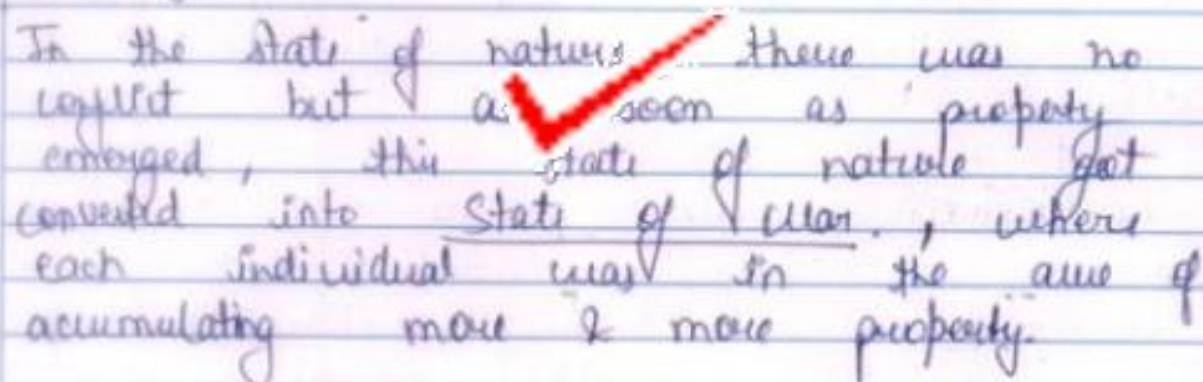 In the state of nature there was no
conflict but as soon as property
emerged, this state of nature got
converted into State of War. , where
each individual was in the awe of
accumulating more & more property.